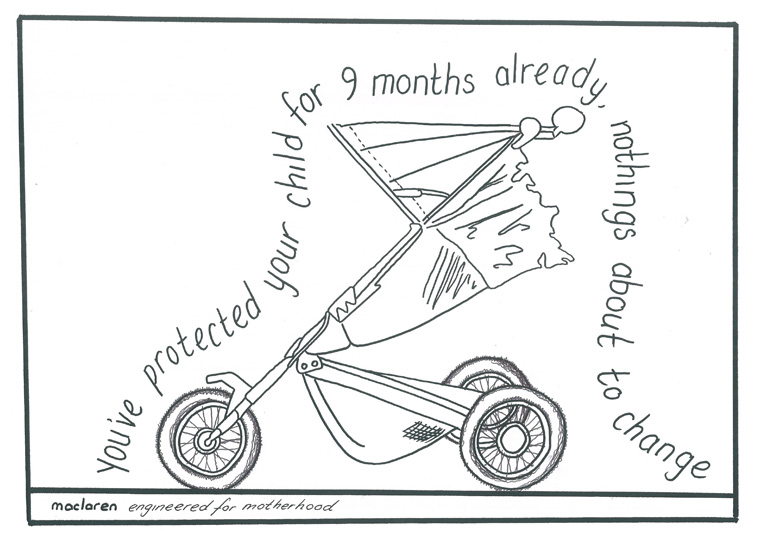 You've protected your child for 9 months already, nothings about to change
maclaren engineered for motherhood